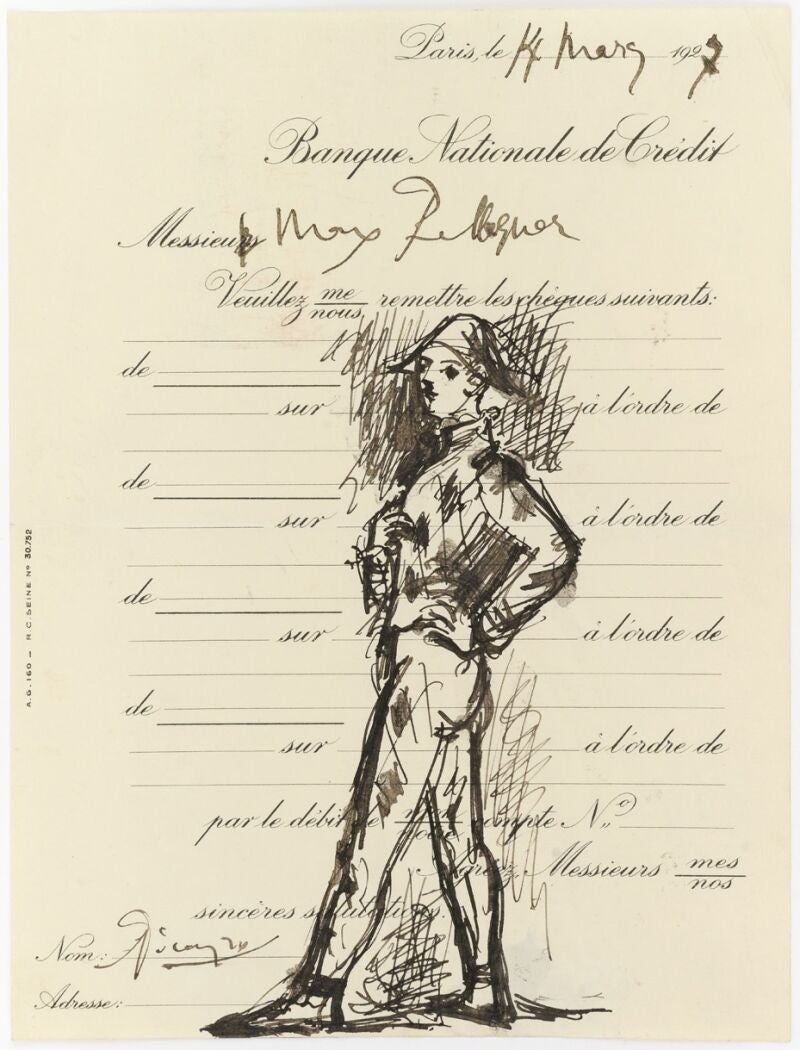 Paris, le 14 Mars 1927
Banque Nationale de Crédit
Messieurs Max Pellequer
Veuillez me nous remettre les chèques suivants:
de
sur à l'ordre de
de
sur à l'ordre de
de
sur à l'ordre de
de
sur à l'ordre de
par le débit de mon notre compte N°
Agréez, Messieurs mes nos
sincères salutations.
Nom: Picasso
Adresse:
A.G. 160 — R.C. SEINE Nº 30.752